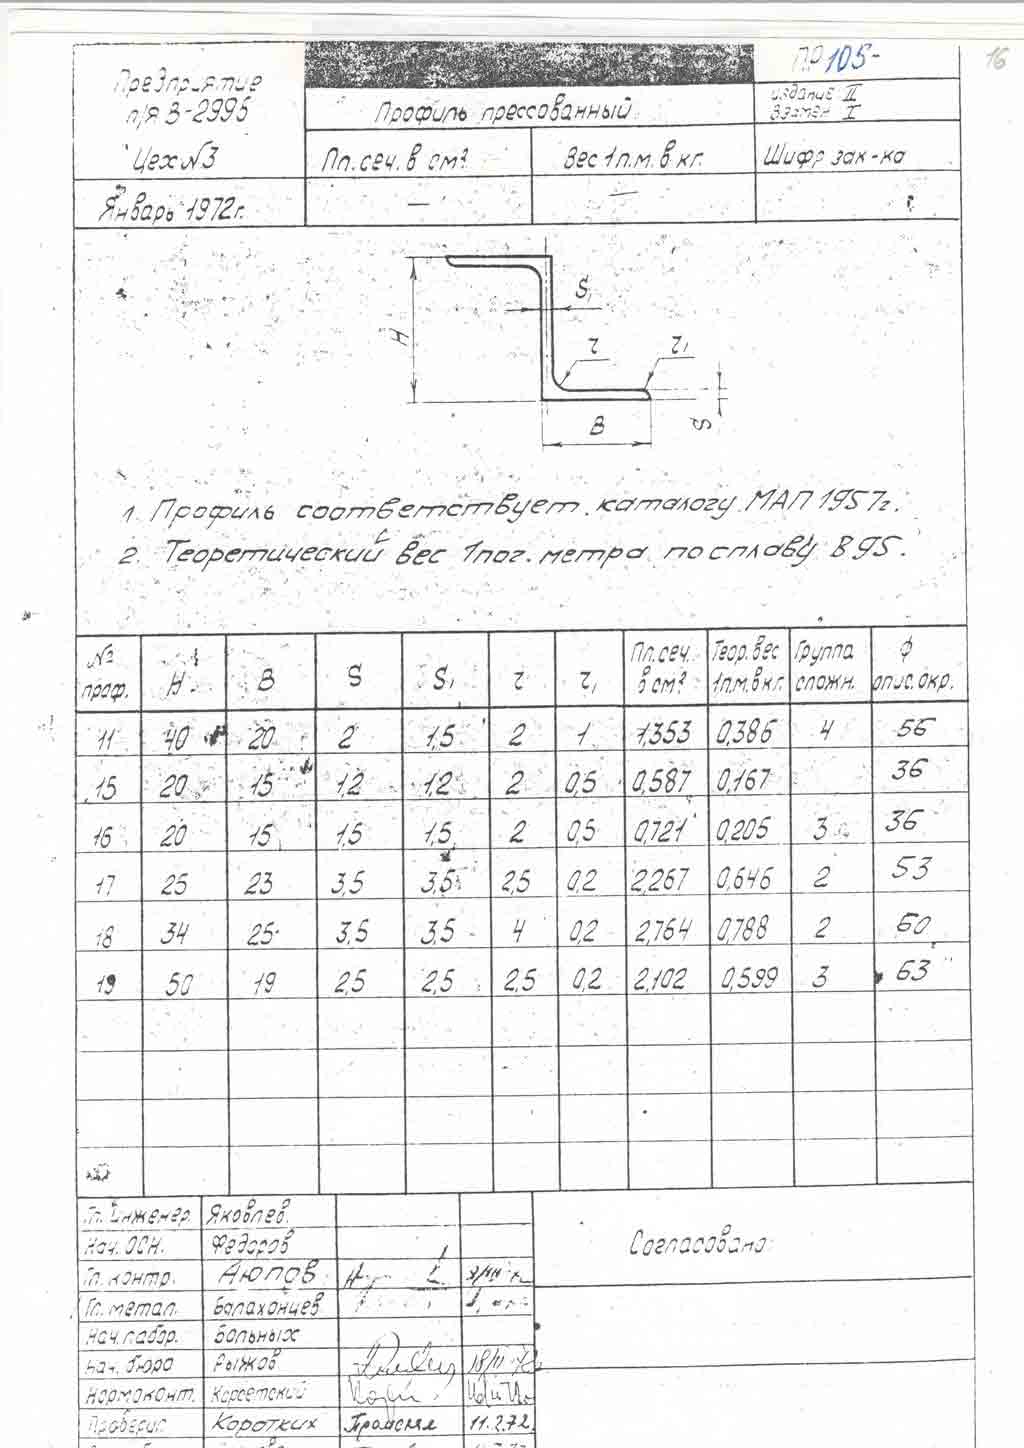 ПР 105-
16
Предприятие
п/я В-2995
Профиль прессованный
издание II
взамен I
Цех №3
Пл. сеч. в см²
Вес 1 п.м. в кг.
Шифр зак-ка
Январь 1972г.
— —
S₁
H
r r₁
B
S
1. Профиль соответствует каталогу МАП 1957г.
2. Теоретический вес 1 пог. метра по сплаву В95.
№ проф. H B S S₁ r r₁ Пл. сеч. в см² Теор. вес 1п.м. в кг. Группа сложн. ф опис. окр.
11 40 20 2 1,5 2 1 1,353 0,386 4 56
15 20 15 1,2 1,2 2 0,5 0,587 0,167 36
16 20 15 1,5 1,5 2 0,5 0,721 0,205 3 36
17 25 23 3,5 3,5 2,5 0,2 2,267 0,646 2 53
18 34 25 3,5 3,5 4 0,2 2,764 0,788 2 60
19 50 19 2,5 2,5 2,5 0,2 2,102 0,599 3 63
Гл. инженер. Яковлев.
Согласовано:
Нач. ОСН. Федоров
Гл. контр. Аюпов
Гл. метал. Балахонцев
Нач. лабор. Больных
Нач. бюро Рыжов
Нормоконт. Корсетский
Проверил Коротких 11.2.72.